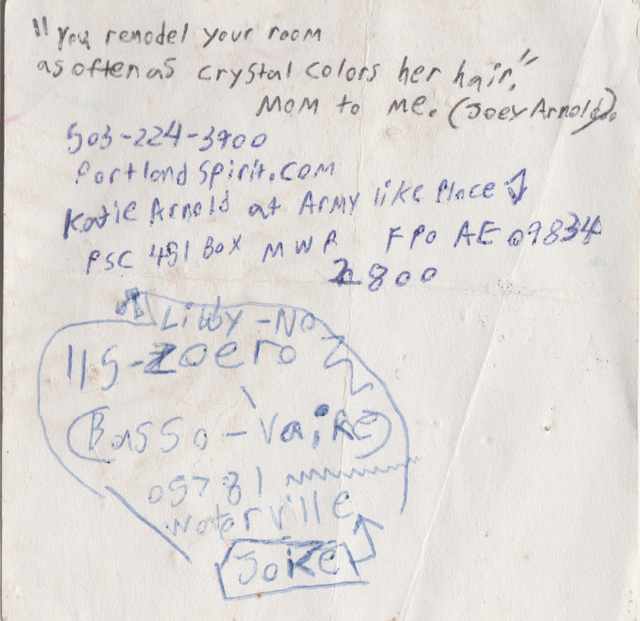 "You remodel your room
as often as crystal colors her hair."
Mom to me. (Joey Arnold).
503-224-3900
PortlandSpirit.com
Katie Arnold at Army like Place
PSC 481 Box MWR FPO AE 09834
2800
Libby - No
115-zoero
(Basso - Vaire)
05781
Waterville
Joke